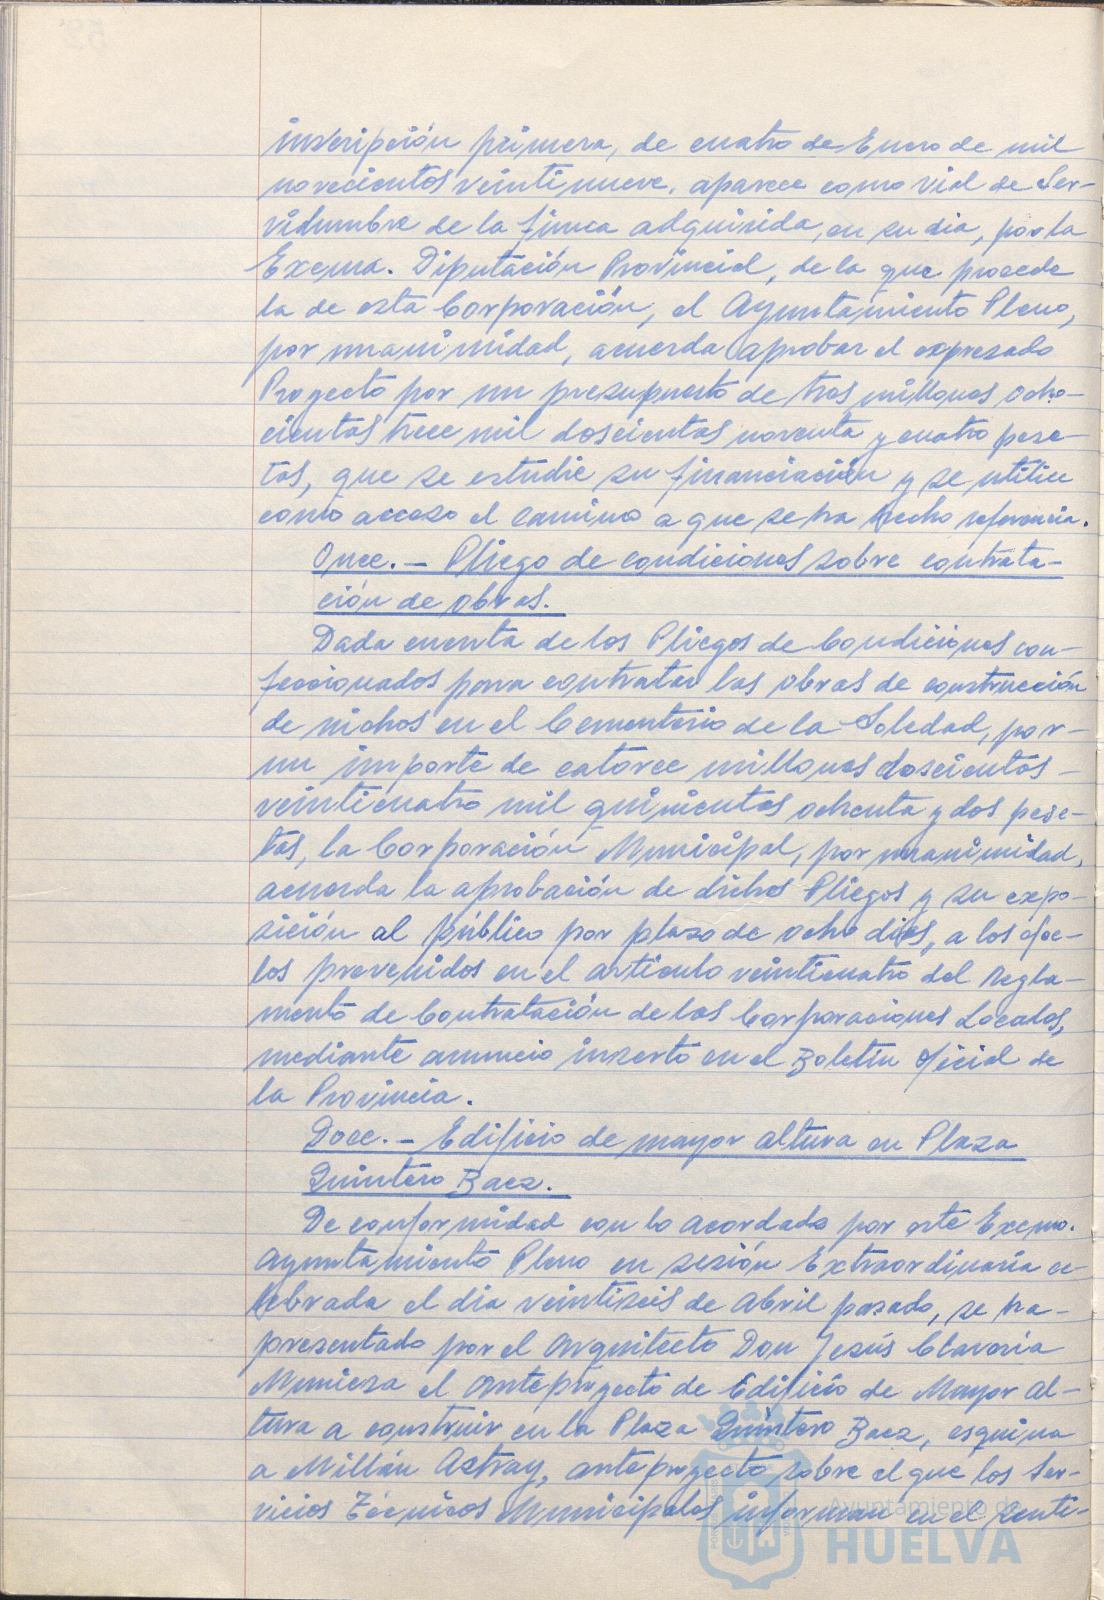 inscripción primera, de cuatro de Enero de mil
novecientos veintinueve, aparece como vial de Ser-
vidumbre de la finca adquirida, en su dia, por la
Excma. Diputación Provincial, de la que procede
la de esta Corporación, el Ayuntamiento Pleno,
por unanimidad, acuerda aprobar el expresado
Proyecto por un presupuesto de tres millones ocho-
cientas trece mil doscientas noventa y cuatro pese-
tas, que se estudie su financiación y se utilice
como acceso el camino a que se ha hecho referencia.
Once.- Pliego de condiciones sobre contrata-
ción de obras.
Dada cuenta de los Pliegos de Condiciones con-
feccionados para contratar las obras de construcción
de nichos en el Cementerio de la Soledad, por-
un importe de catorce millones doscientas-
veinticuatro mil quinientas ochenta y dos pese-
tas, la Corporación Municipal, por unanimidad,
acuerda la aprobación de dichos Pliegos y su expo-
sición al público por plazo de ocho dias, a los efec-
tos prevenidos en el articulo veinticuatro del Regla-
mento de Contratación de las Corporaciones Locales,
mediante anuncio inserto en el Boletin Oficial de
la Provincia.
Doce.- Edificio de mayor altura en Plaza
Quintero Baez.
De conformidad con lo acordado por este Excmo.
Ayuntamiento Pleno en sesión Extraordinaria ce-
lebrada el dia veintiseis de Abril pasado, se ha-
presentado por el Arquitecto Don Jesús Clavería
Munieza el anteproyecto de Edificio de Mayor al-
tura a construir en la Plaza Quintero Baez, esquina
a Millán Astray, anteproyecto sobre el que los Ser-
vicios Técnicos Municipales informan en el senti-
Ayuntamiento de
HUELVA